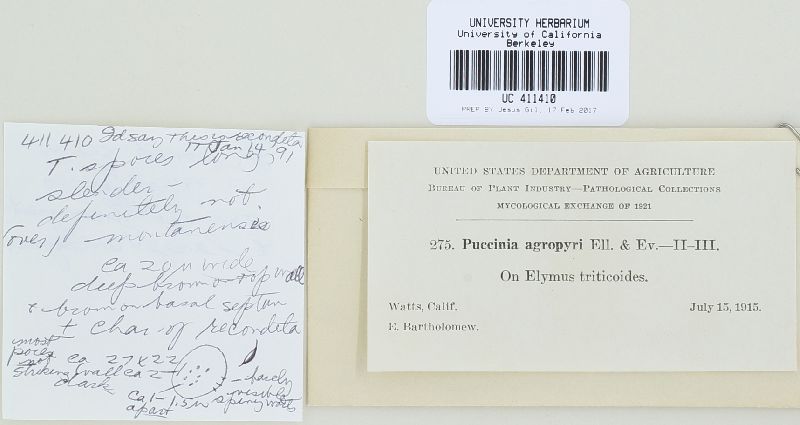 UNIVERSITY HERBARIUM
University of California
Berkeley
UC 411410
PREP BY Jesus Gil, 17 Feb 2017
411 410 I'd say this is recondita
17 Jan 91
T. spores long,
slender –
definitely not
(over) montanensis
ca 20 µ wide
deep brown on top wall
+ brown on basal septum
+ char. of recondita
most
pores
not
striking
ca 27 x 22
wall ca 2
dark
ca 1–1.5 µ
apart
– barely
visible
spiny warts
UNITED STATES DEPARTMENT OF AGRICULTURE
BUREAU OF PLANT INDUSTRY—PATHOLOGICAL COLLECTIONS
MYCOLOGICAL EXCHANGE OF 1921
275. Puccinia agropyri Ell. & Ev.—II–III.
On Elymus triticoides.
Watts, Calif. July 15, 1915.
E. Bartholomew.